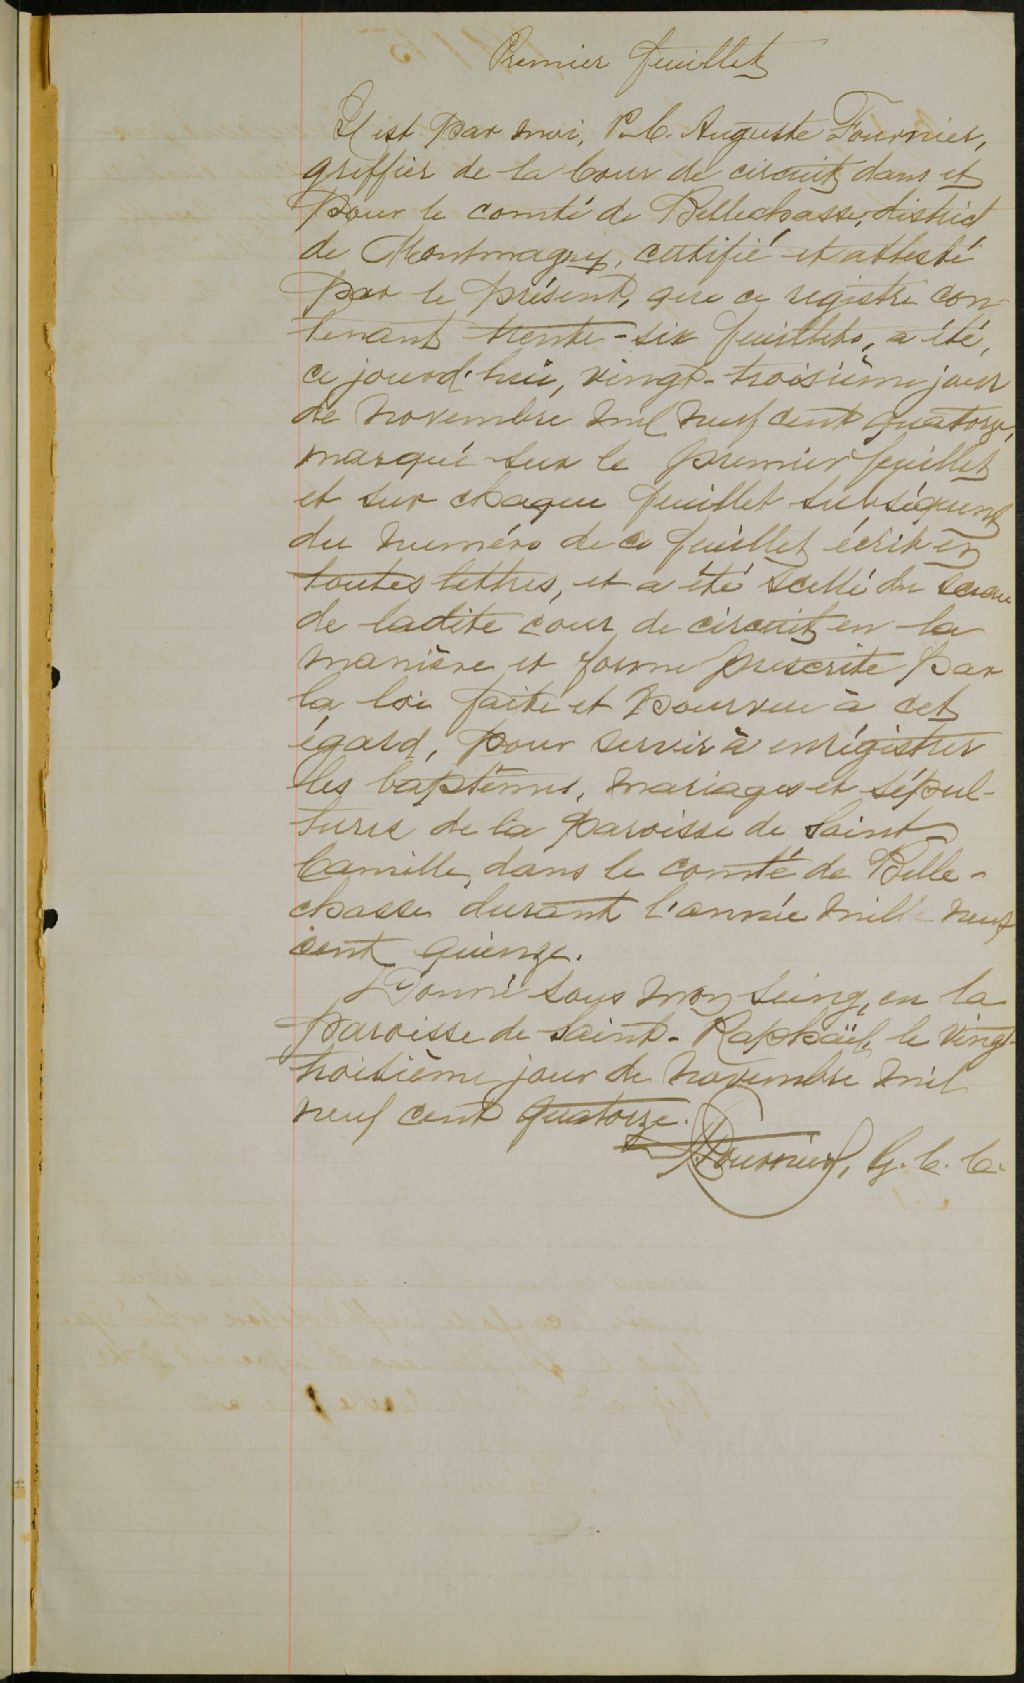 Premier feuillet
Il est par moi, P. C. Auguste Fournier,
greffier de la Cour de circuit dans et
pour le comté de Bellechasse, district
de Montmagny, certifié et attesté
par le présent, que ce registre con-
tenant trente-six feuillets, a été,
ce jourd'hui, vingt-troisième jour
de novembre mil neuf cent quatorze,
marqué sur le premier feuillet
et sur chaque feuillet subséquent
du numéro de ce feuillet écrit en
toutes lettres, et a été scellé du sceau
de ladite cour de circuit en la
manière et forme prescrite par
la loi faite et pourvue à cet
égard, pour servir à enrégistrer
les baptêmes, mariages et sépul-
tures de la paroisse de Saint
Camille, dans le comté de Belle-
chasse durant l'année mille neuf
cent quinze.
Donné sous mon seing, en la
paroisse de Saint-Raphaël, le vingt-
troisième jour de novembre mil
neuf cent quatorze.
Fournier, G. C. C.